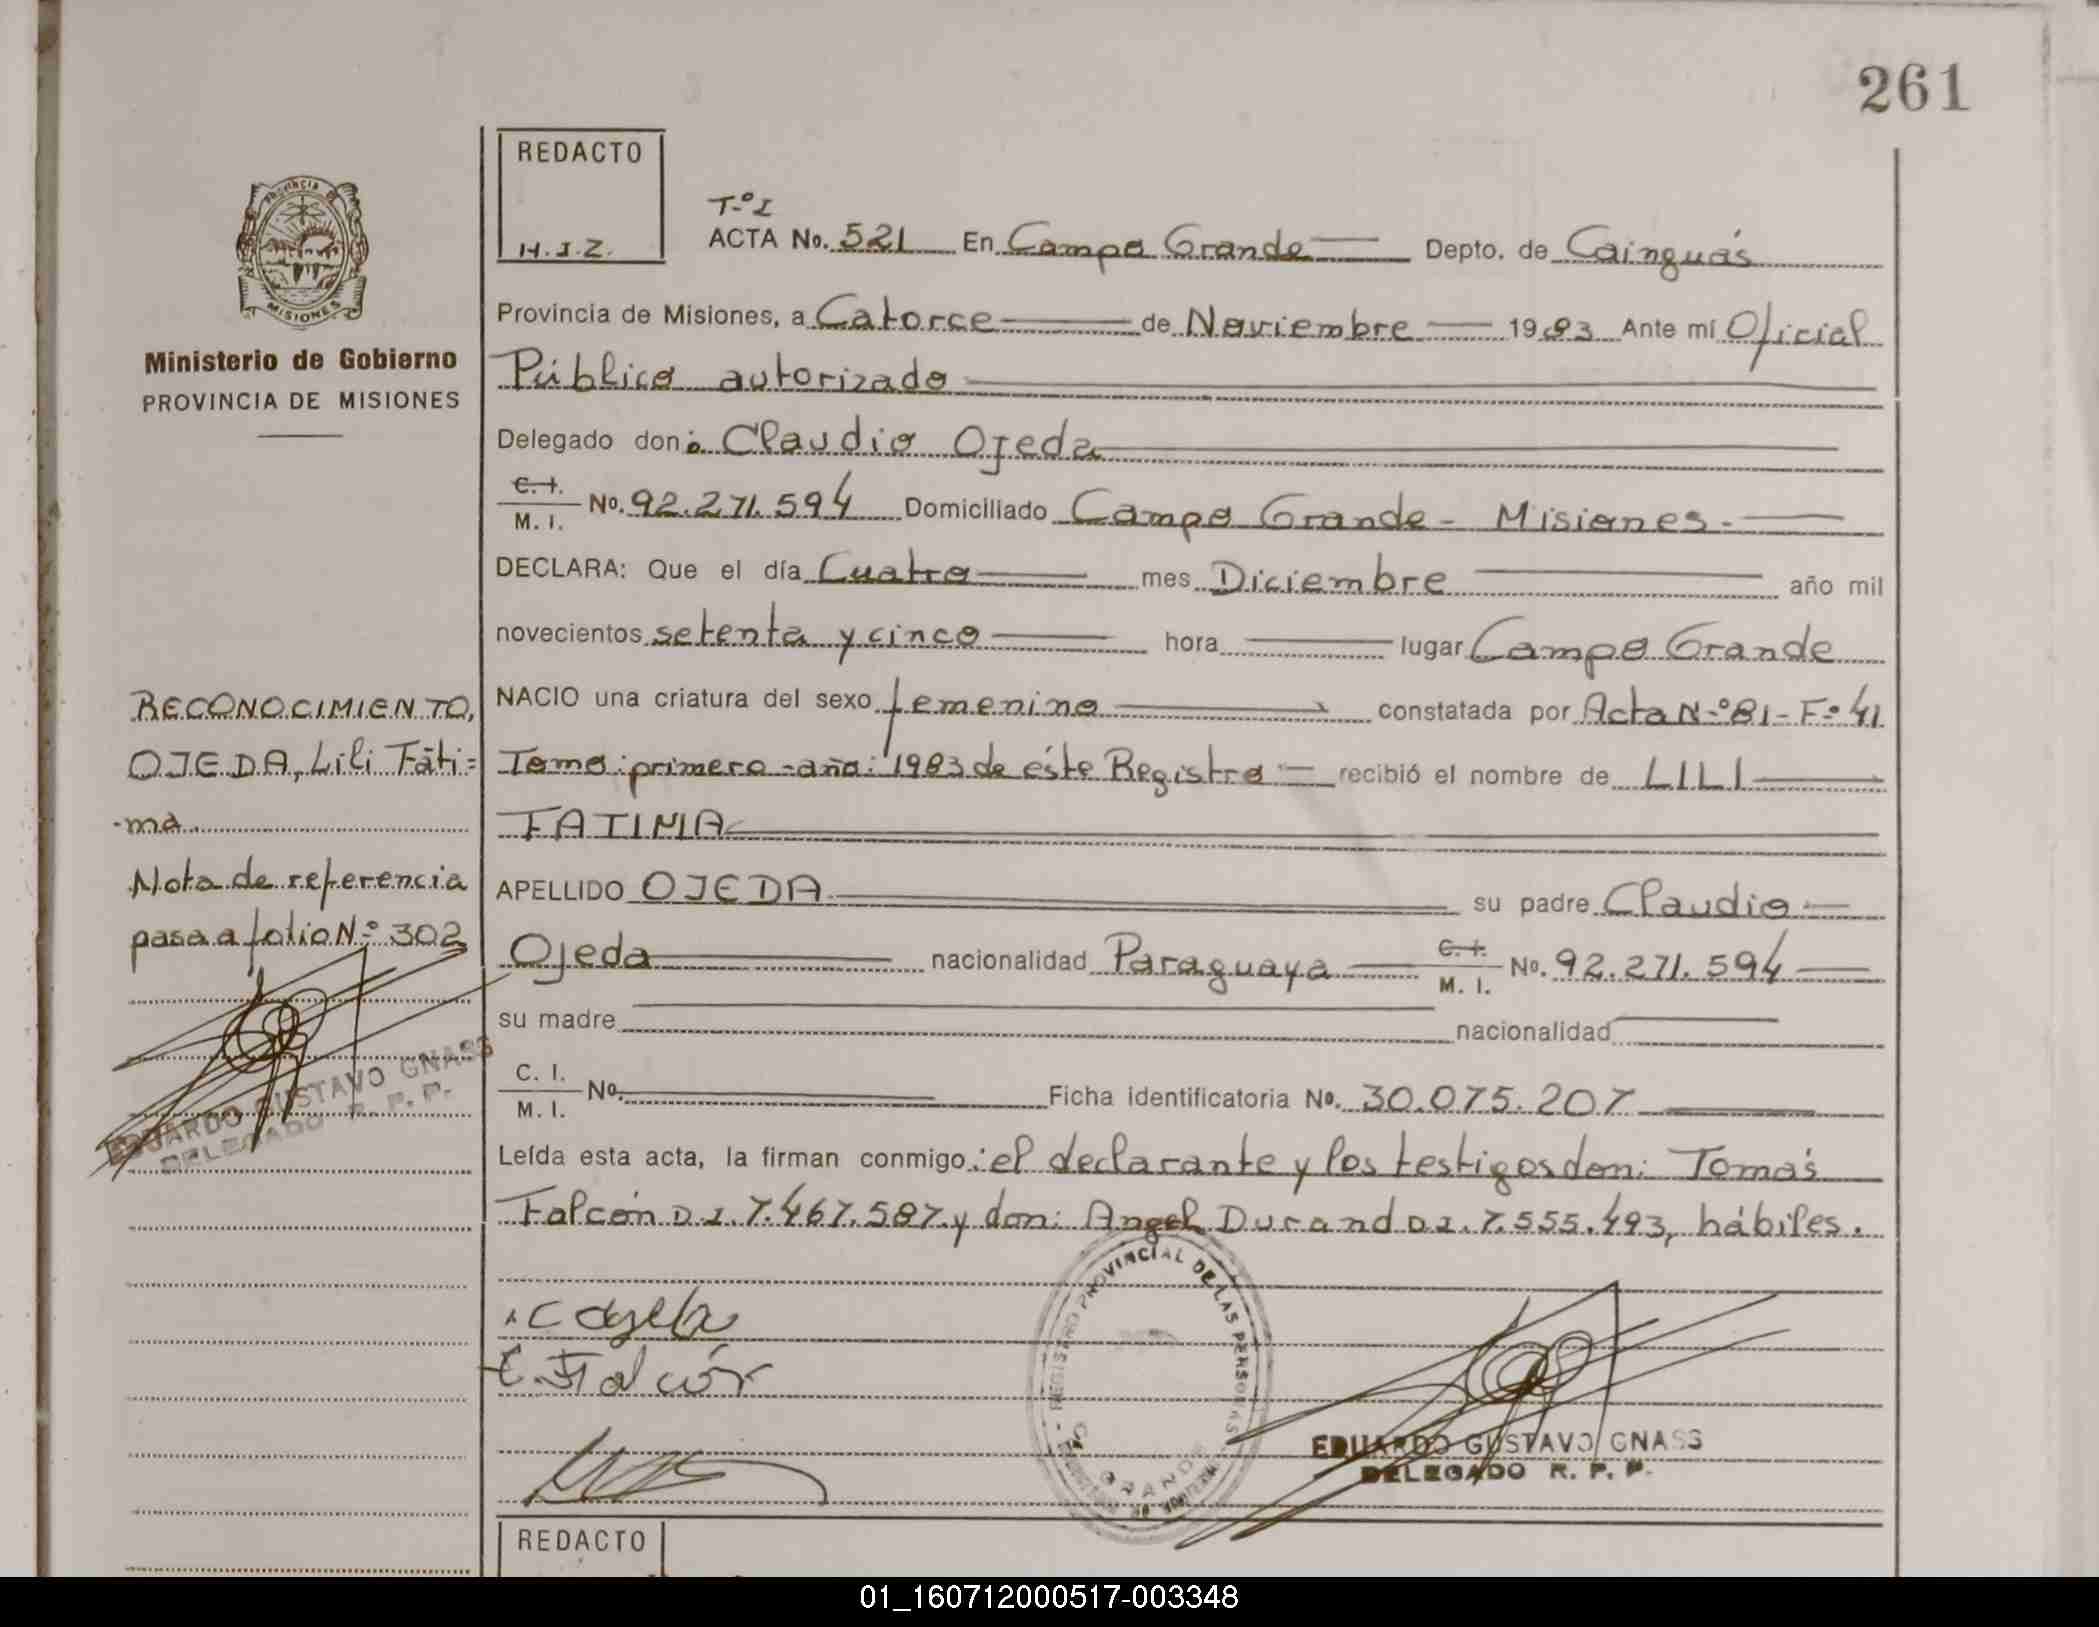 261
REDACTO
H.J.Z.
T.º I
ACTA No. 521 En Campo Grande Depto. de Cainguás
Provincia de Misiones, a Catorce de Noviembre 1983 Ante mí Oficial
Público autorizado
Delegado don: Claudio Ojeda
C. I. / M. I. No. 92.271.594 Domiciliado Campo Grande - Misiones.
DECLARA: Que el día Cuatro mes Diciembre año mil
novecientos setenta y cinco hora lugar Campo Grande
NACIO una criatura del sexo femenino constatada por Acta N.º 81 - F.º 41
Tomo: primero - año: 1983 de éste Registro recibió el nombre de LILI
FATIMA
APELLIDO OJEDA su padre Claudio
Ojeda nacionalidad Paraguaya C. I. / M. I. No. 92.271.594
su madre nacionalidad
C. I. / M. I. No. Ficha identificatoria No. 30.075.207
Leída esta acta, la firman conmigo: el declarante y los testigos don: Tomás
Falcón D.I. 7.467.587 y don: Angel Durand D.I. 7.555.493, hábiles.
PROVINCIA MISIONES
Ministerio de Gobierno
PROVINCIA DE MISIONES
RECONOCIMIENTO,
OJEDA, Lili Fáti=
-ma
Nota de referencia
pasa a folio N.º 302
EDUARDO GUSTAVO GNASS
DELEGADO R. P. P.
C Ojeda
T. Falcón
REGISTRO PROVINCIAL DE LAS PERSONAS
GRANDE
EDUARDO GUSTAVO GNASS
DELEGADO R. P. P.
REDACTO
01_160712000517-003348